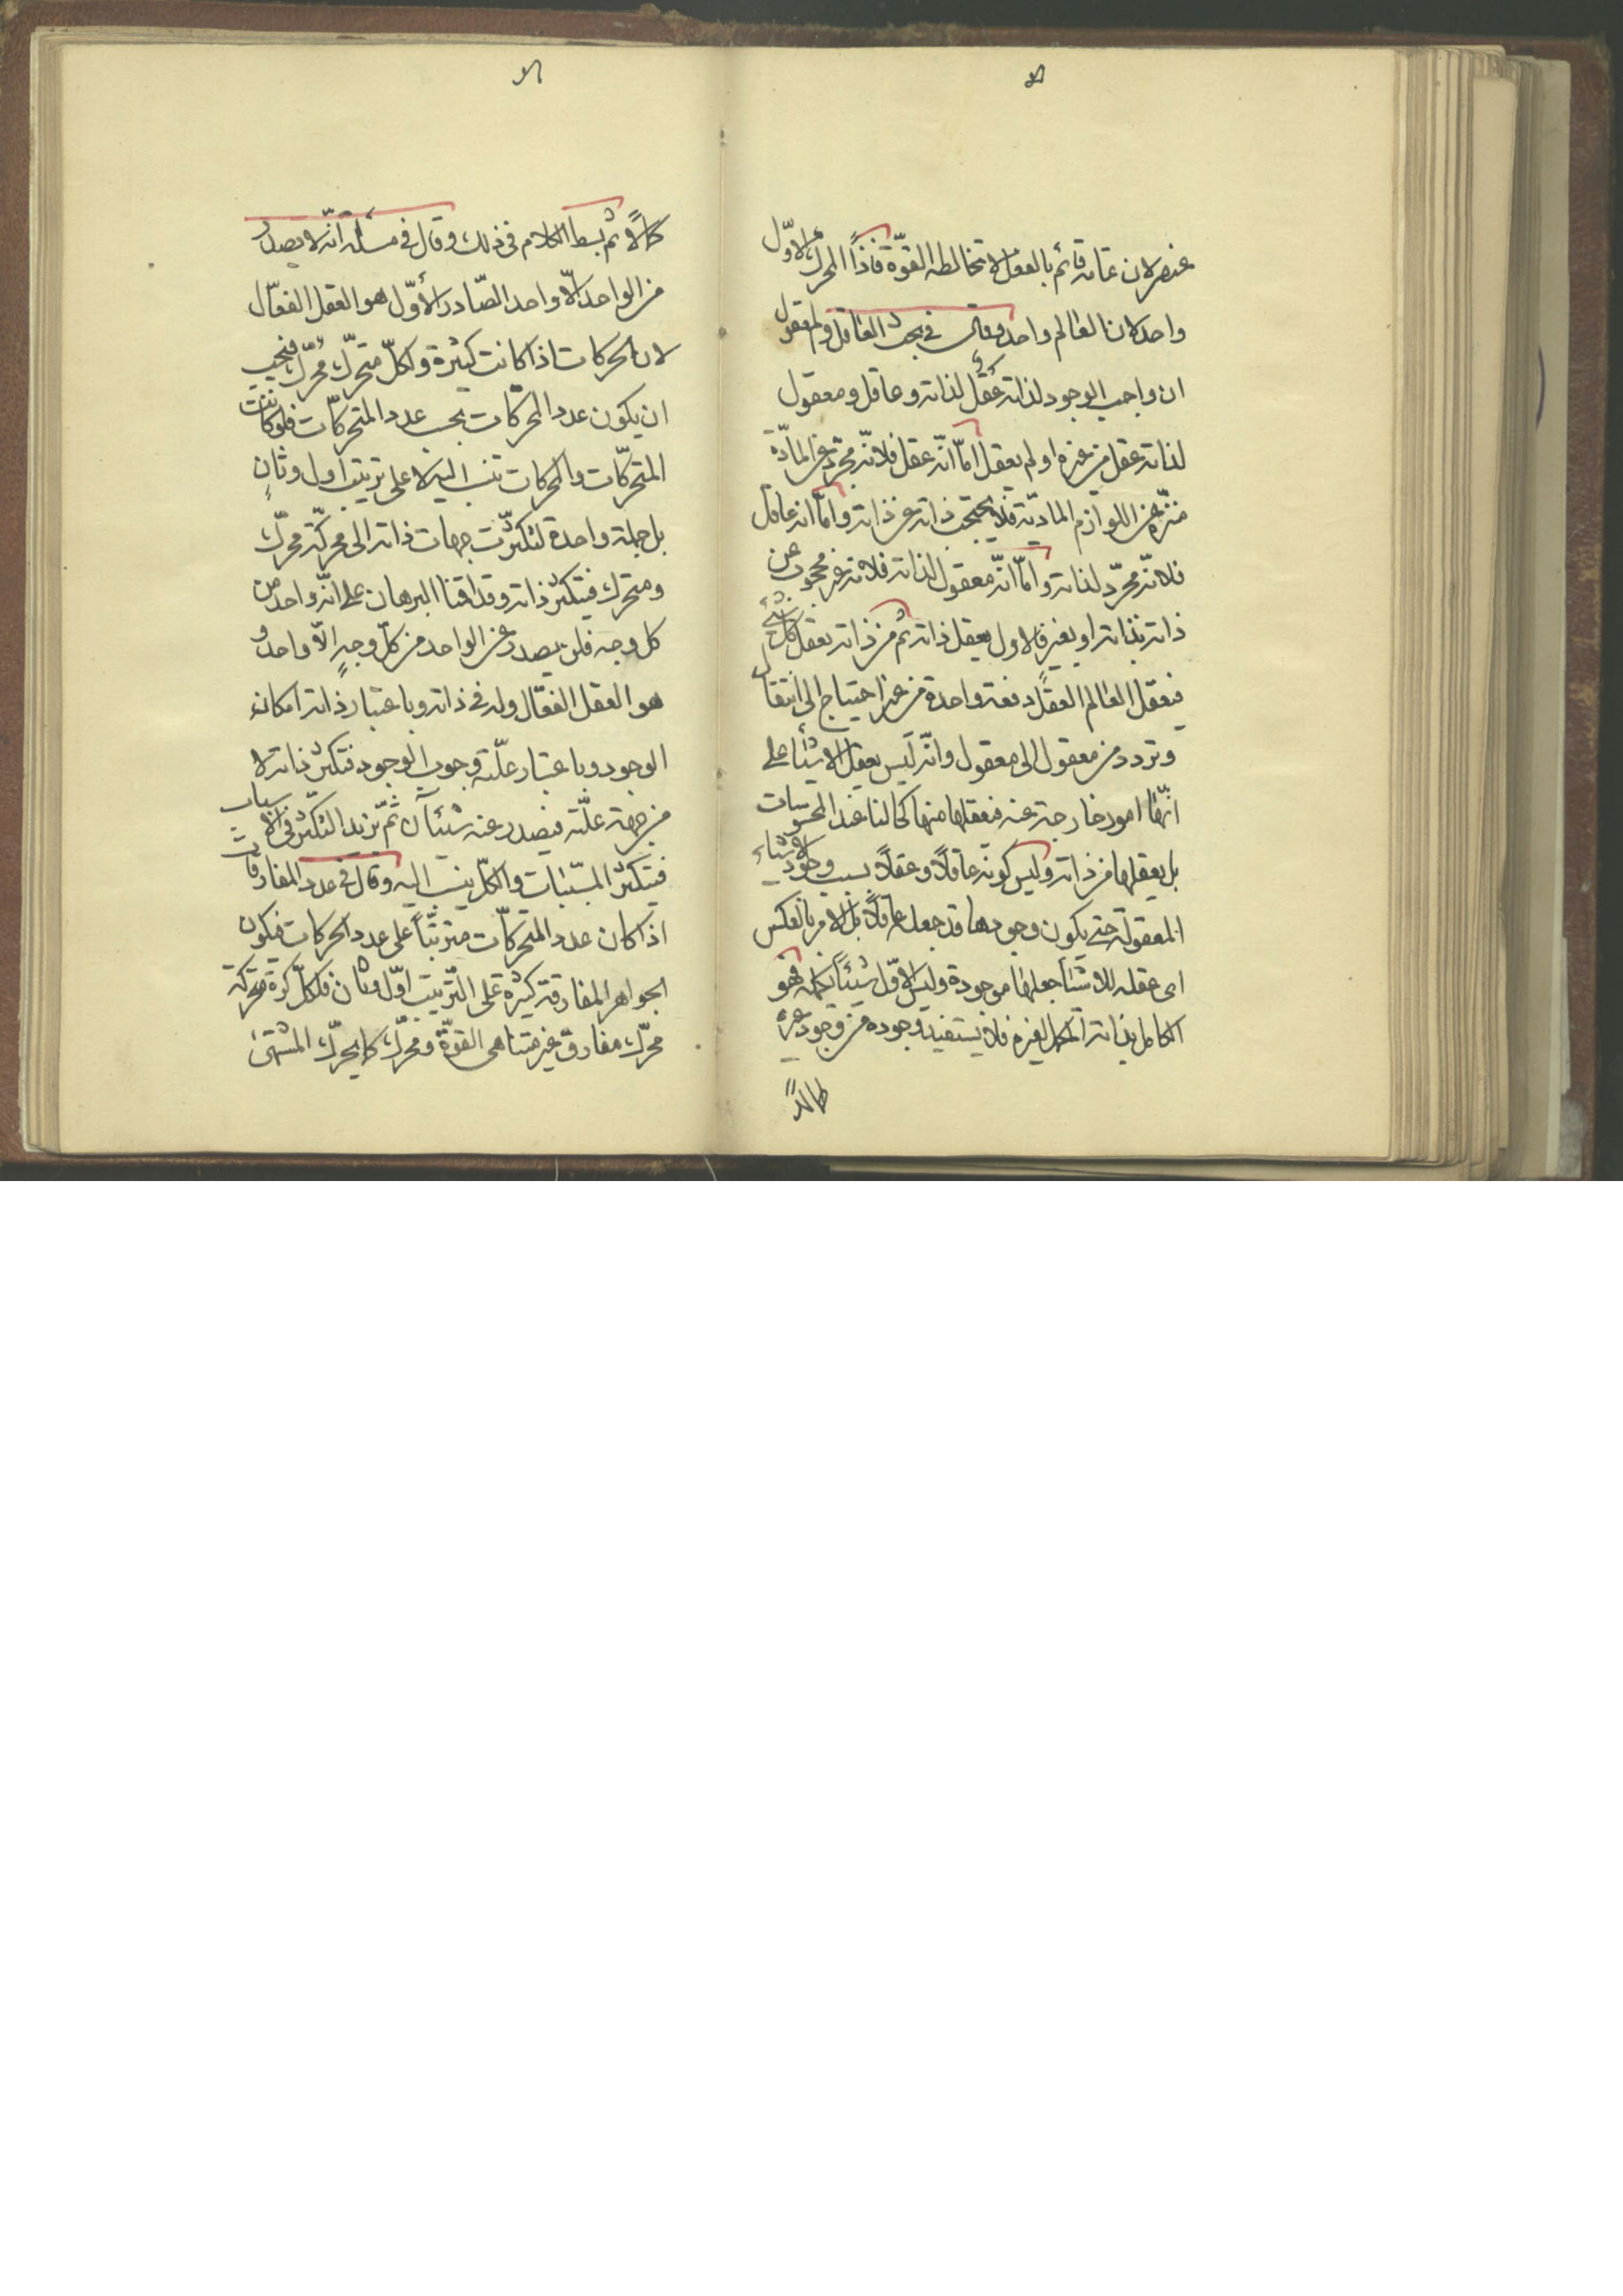 عنصر لان تمامه قائم بالفعل لا تخالطه القوّة فاذاً المحرك الاوّل
واحد لان العالم واحد وقال في بحث العاقل والمعقول
ان واجب الوجود لذاته عقل لذاته وعاقل ومعقول
لذاته عقل من غيره او لم يعقل امّا انّه عقل فلانّه مجرّد عن المادّة
منزّه عن اللوازم الماديّة فلا يحتجب ذاته عن ذاته وامّا انه عاقل
فلانّه مجرّد لذاته وامّا انّه معقول لذاته فلانه غير محجوب عن
ذاته بذاته او بغيره فالاول يعقل ذاته ثم من ذاته يعقل كل شئ
فيعقل العالم العقلى دفعة واحدة من غير احتياج الى انتقال
وتردد من معقول الى معقول وانّه ليس يعقل الاشياء على
انّها امور خارجة عنه فيعقلها منها كحالنا عند المحسوسات
بل يعقلها من ذاته وليس كونه عاقلاً وعقلاً بسبب وجود الاشياء
المعقولة حتى يكون وجودها قد جعله عاقلاً بل الامر بالعكس
اى عقله للاشياء جعلها موجودة وليس للاوّل شيئاً يكمله فهو
الكامل بذاته المكمل لغيره فلا يستفيد وجوده من وجود غيره
كمالاً
كمالاً ثم بسط الكلام فى ذلك وقال فى مسئلة انّه لا يصدر
من الواحد الّا واحد الصّادر الأوّل هو العقل الفعّال
لان الحركات اذا كانت كثيرة ولكلّ متحرّك محرّك فيجب
ان يكون عدد المحركات بحسب عدد المتحركّات فلو كانت
المتحركّات والمحركات تنسب اليه لا على ترتيب اول وثانٍ
بل جملة واحدة لتكثّرت جهات ذاته الى محركّ محرّك
ومتحرك فيتكثّر ذاته وقد اقمنا البرهان على انّه واحد من
كل وجه فلن يصدر عن الواحد من كلّ وجهٍ الّا واحد و
هو العقل الفعّال وله فى ذاته وباعتبار ذاته امكان
الوجود وباعتبار علّته وجوب الوجود فتكثّر ذاته لا
من جهة علّته فيصدر عنه شيئآن ثمّ يزيد التكثّر فى الاسباب
فيتكثّر المسبّبات والكلّ ينسب اليه وقال فى عدد المفارقات
اذا كان عدد المتحركّات مترتّباً على عدد المحركات فيكون
الجواهر المفارقة كثيرة على التّرتيب اوّل وثان فلكلّ كرة متحركة
محرّك مفارق غير متناهى القوّة ومحرّك كما يحرّك المشتهى